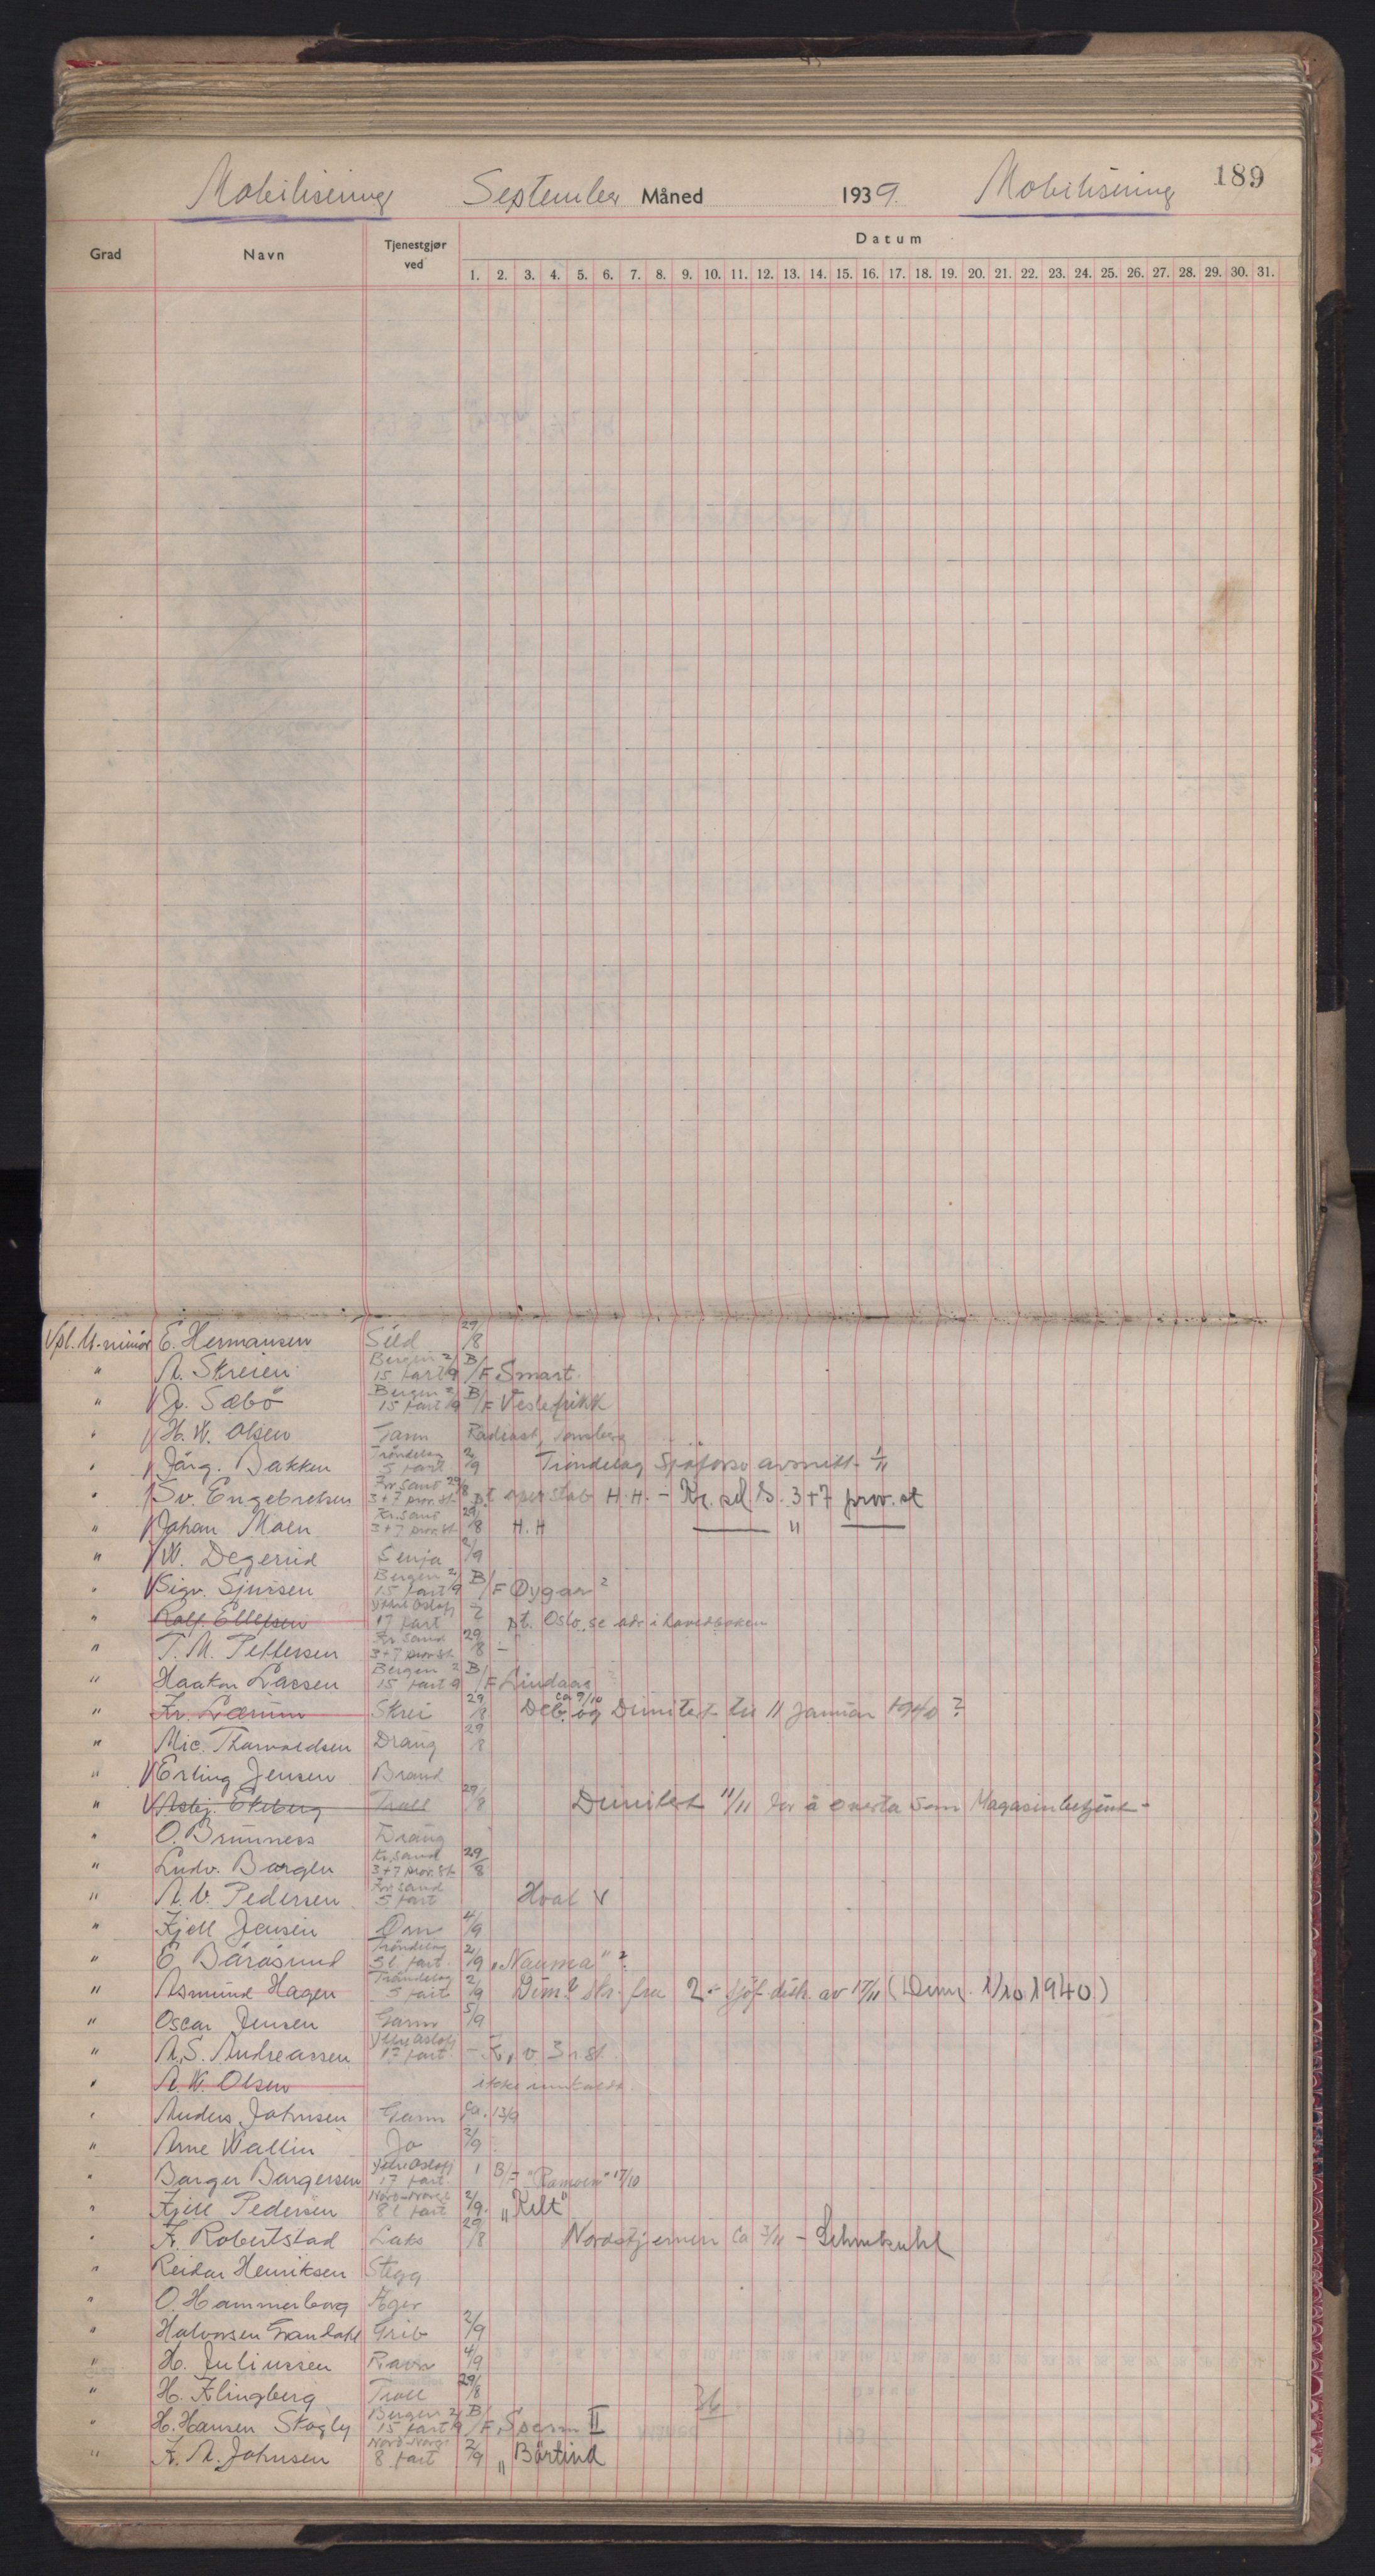 189
Mobilisering September Måned 1939. Mobilisering
Grad Navn Tjenestgjør ved Datum
1. 2. 3. 4. 5. 6. 7. 8. 9. 10. 11. 12. 13. 14. 15. 16. 17. 18. 19. 20. 21. 22. 23. 24. 25. 26. 27. 28. 29. 30. 31.
Vpl. U-minör E. Hermansen Sild 29/8
" A. Skreien Bergen 15 fart 2/9 B/F Smart.
" Jo. Sæbö Bergen 15 fart 2/9 B/F Veslefrikk
" H. W. Olsen Garm Radioast, Tønsberg
" Jørg. Bakken Trøndelag 5 fart 2/9 Trøndelag Sjøforsv avsnitt 1/11
" Sv. Engebretsen Kr.Sand 3+7 prov.st. 29/8 pt oper stab H.H. - Kr. sd S. 3+7 prov. st
" Johan Moen Kr.Sand 3+7 prov.st. 29/8 H.H — " —
" W. Degerud Senja 2/9
" Sigv. Sjursen Bergen 15 fart 2/9 B/F Øygar ?
" Rolf Ellefsen Ytre Oslofj 17 fart pt. Oslo, se adr i hovedboken
" T. M. Pettersen Kr Sand 3+7 prov st. 29/8 -
" Haakon Larsen Bergen 15 fart 2/9 B/F Lindaas
" Kr. Lærum Skrei 29/8 Deb. og Dimitert til 11 Januar 1940 ? ca 9/10
" Mic. Thorvaldsen Draug 29/8
" Erling Jensen Brand
" Asbj. Ekeberg Troll 29/8 Dimitert 11/11 for å overta som Magasinbetjent -
" O. Brunness Draug
" Ludv. Bargen Kr.Sand 3+7 prov.st. 29/8
" A. V. Pedersen Kr.Sand 5 fart Hval V
" Kjell Jensen Örn 4/9
" E. Båråsund Trøndelag 5 l. fart. 2/9 "Nauma" ?
" Asmund Hagen Trøndelag 5 fart 2/9 Dim? Skr. fra 2. sjöf. distr. av 17/11 (Dim. 1/10 1940)
" Oscar Jensen Garm 5/9
" A. S. Andreassen Ytre Oslofj 17 fart. - K. v. 3 . st.
" A. W. Olsen ikke innkaldt
" Anders Johnsen Garm ca. 13/9
" Arne Wallin Jo 2/9
" Barger Bargersen Ytre Oslofj 17 fart. 1 B/F "Ramoen" 17/10
" Kjell Pedersen Nord-Norge 8 l fart 2/9. "Kelt"
" K. Robertstad Laks 29/8 Nordstjernen ca 3/11 - Lehmkuhl
" Reidar Henriksen Stegg
" O. Hammerborg Æger
" Halvorsen Grandahl Grib 2/9
" H. Juliussen Ravn 4/9
" H. Klingberg Troll 29/8 36
" H. Hansen Skogly Bergen 15 fart 2/9 B/F Sperm II
" K. A. Johnsen Nord-Norge 8 fart 2/9 "Börtind